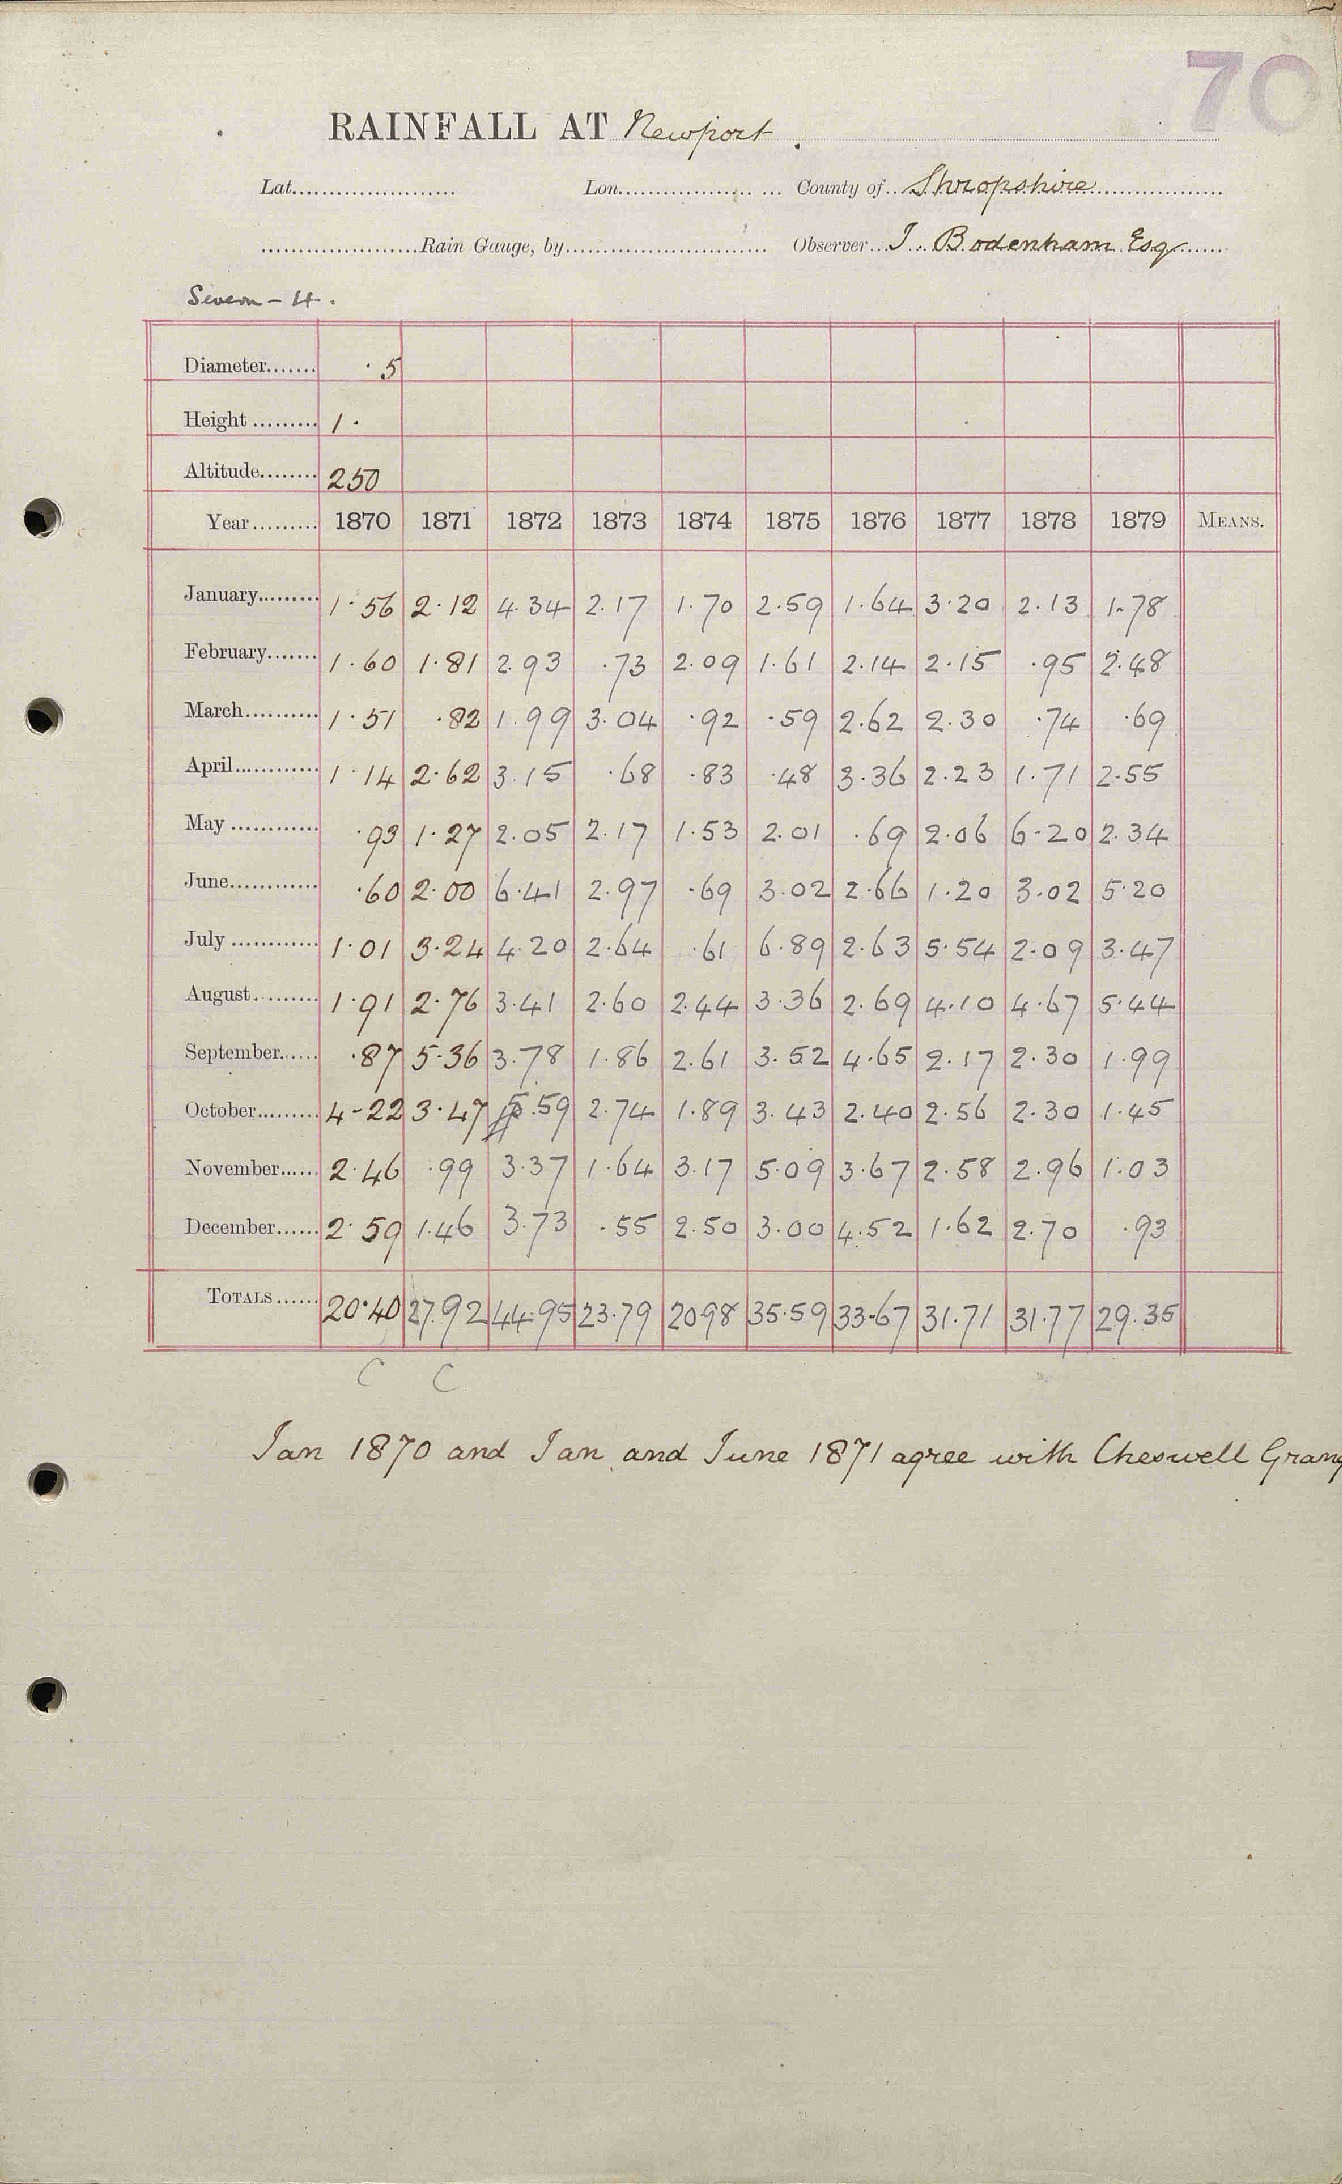 70
RAINFALL AT Newport.
Lat. Lon. County of Shropshire
Rain Gauge, by Observer J. Bodenham Esq
Severn - 4.
Diameter ·5
Height 1·
Altitude 250
Year 1870 1871 1872 1873 1874 1875 1876 1877 1878 1879 MEANS.
January 1·56 2·12 4.34 2.17 1.70 2.59 1.64 3.20 2.13 1.78
February 1.60 1.81 2.93 .73 2.09 1.61 2.14 2.15 .95 2.48
March 1·51 .82 1.99 3.04 .92 .59 2.62 2.30 .74 .69
April 1·14 2.62 3.15 .68 .83 .48 3.36 2.23 1.71 2.55
May .93 1.27 2.05 2.17 1.53 2.01 .69 2.06 6.20 2.34
June .60 2.00 6.41 2.97 .69 3.02 2.66 1.20 3.02 5.20
July 1·01 3.24 4.20 2.64 .61 6.89 2.63 5.54 2.09 3.47
August 1·91 2.76 3.41 2.60 2.44 3.36 2.69 4.10 4.67 5.44
September .87 5.36 3.78 1.86 2.61 3.52 4.65 2.17 2.30 1.99
October 4-22 3.47 5.59 2.74 1.89 3.43 2.40 2.56 2.30 1.45
November 2.46 .99 3.37 1.64 3.17 5.09 3.67 2.58 2.96 1.03
December 2.59 1.46 3.73 .55 2.50 3.00 4.52 1.62 2.70 .93
TOTALS 20.40 27.92 44.95 23.79 20.98 35.59 33.67 31.71 31.77 29.35
C C
Jan 1870 and Jan and June 1871 agree with Cheswell Grang